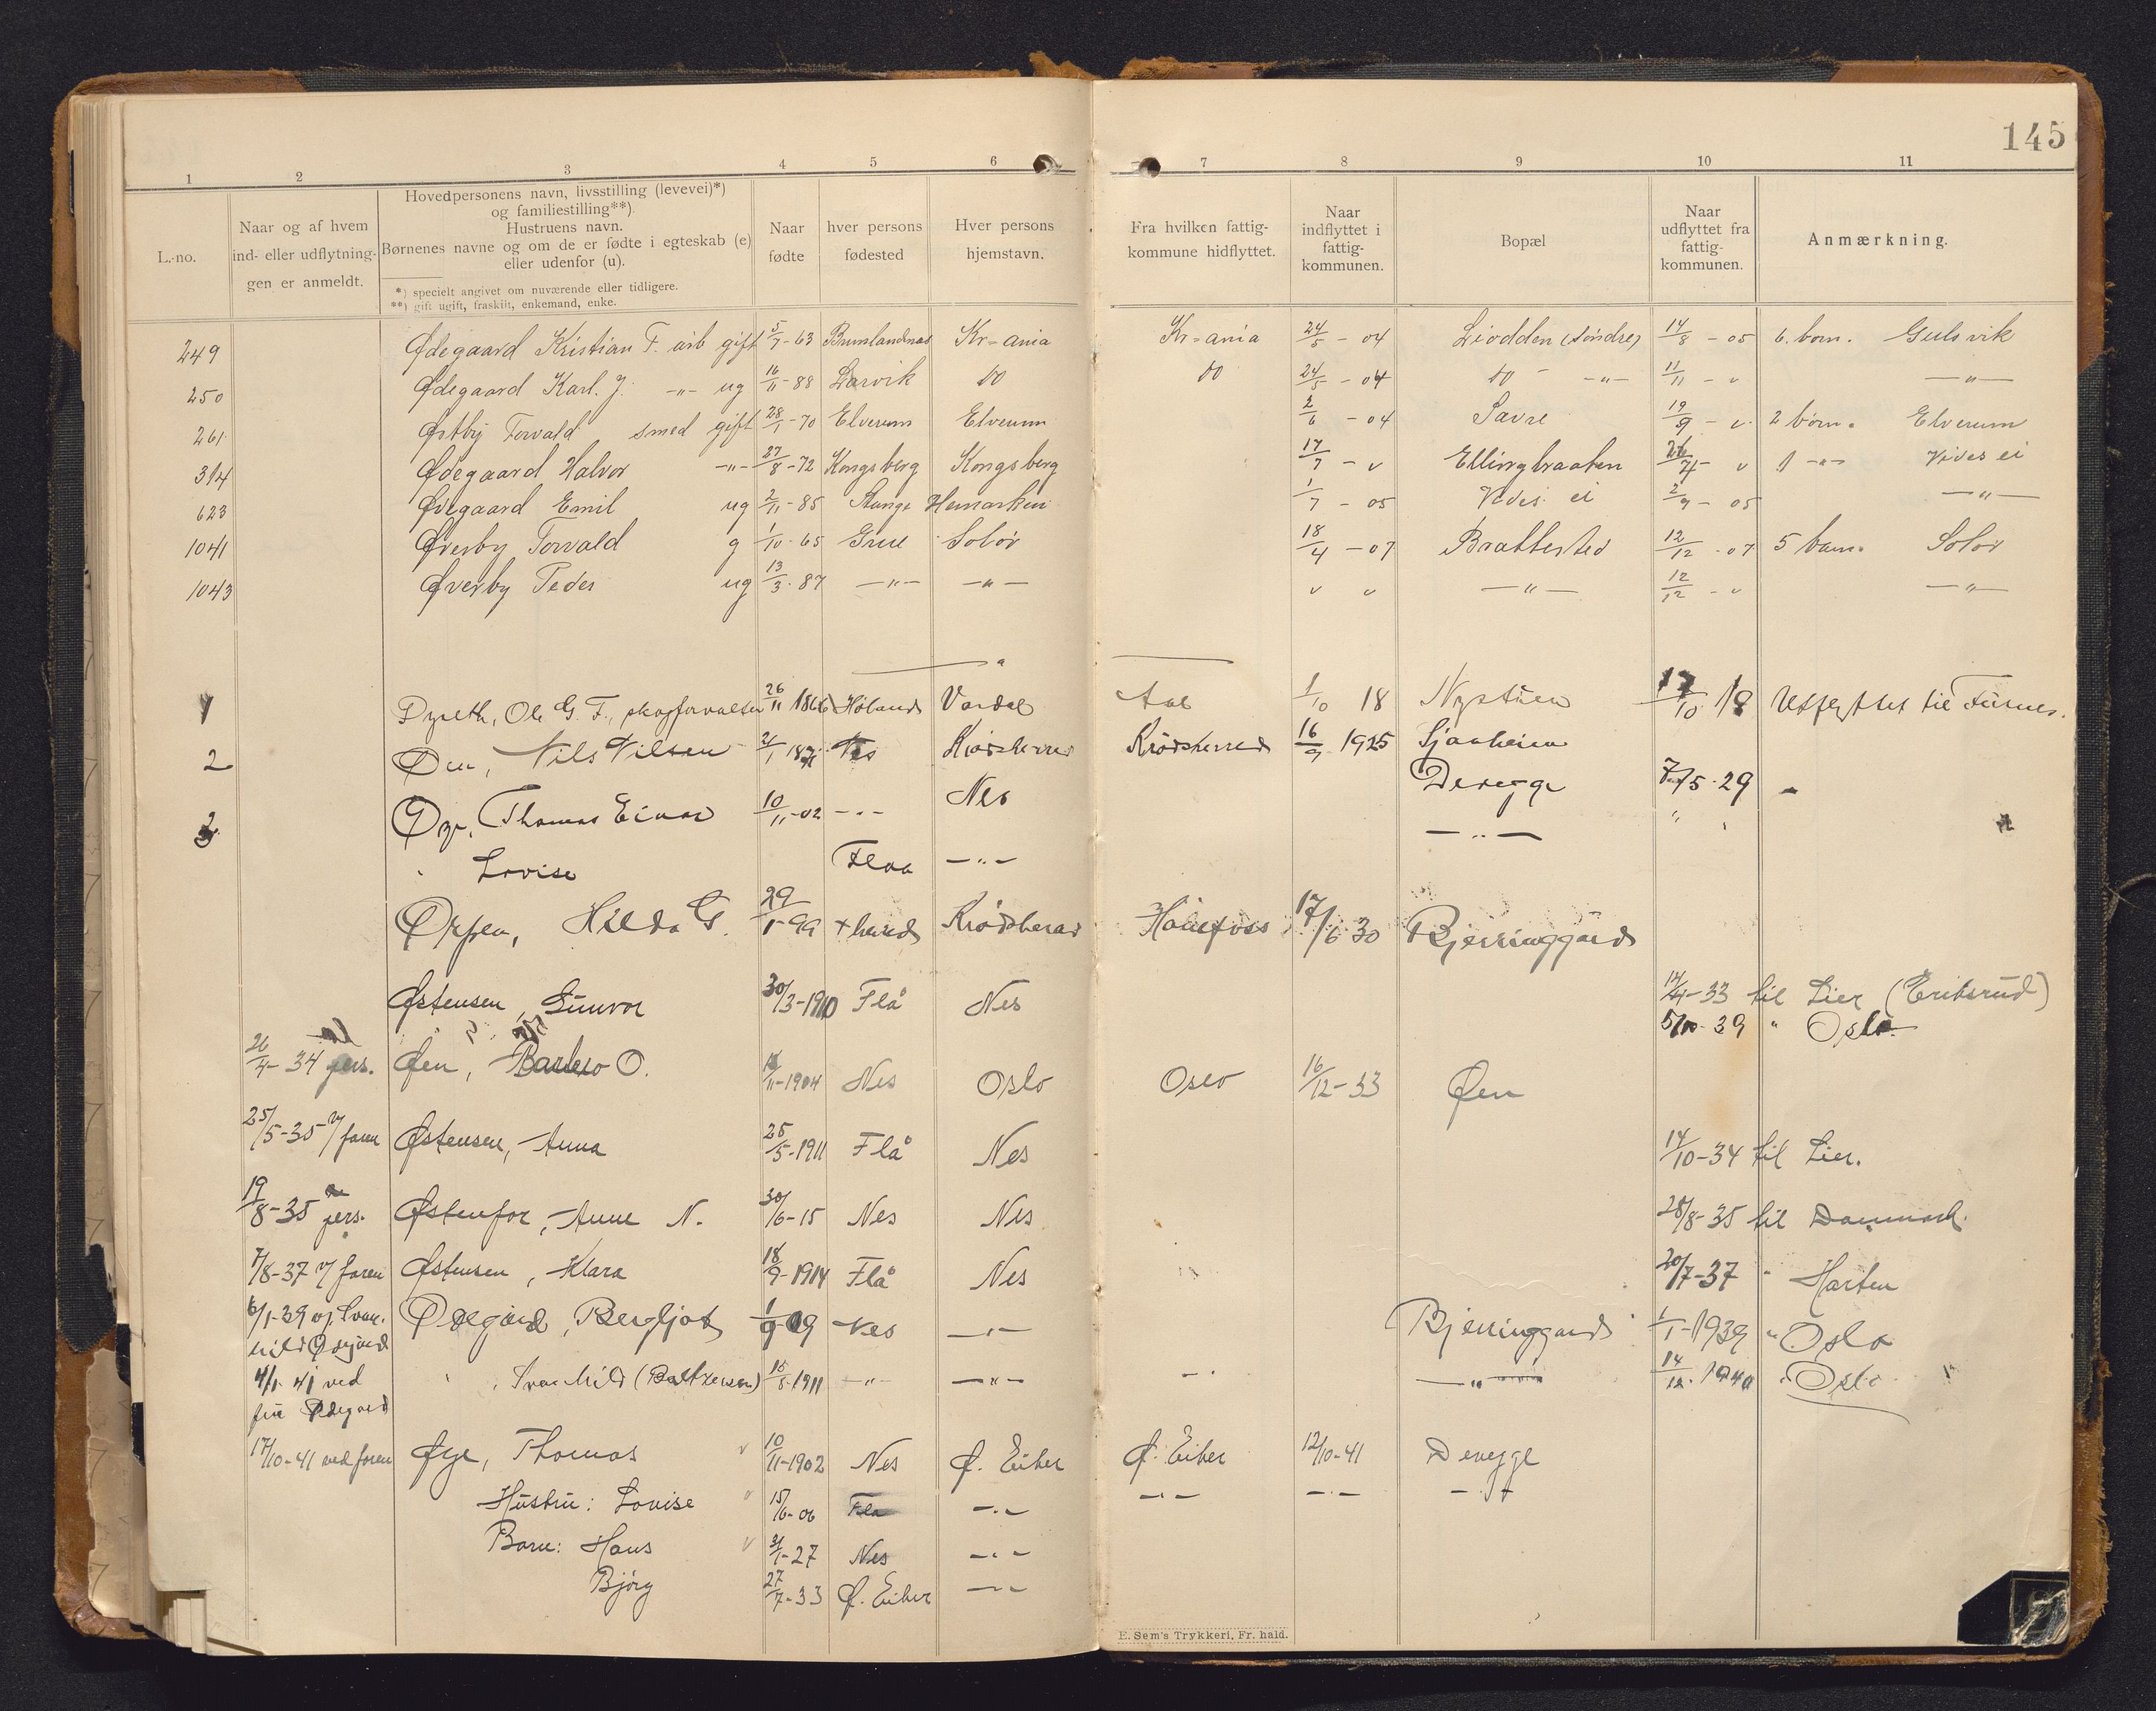 145
1 2 3 4 5 6 7 8 9 10 11
L.-no.
Naar og af hvem
ind- eller udflytnin-
gen er anmeldt.
Hovedpersonens navn, livsstilling (levevei)*)
og familiestilling**)
Hustruens navn.
Børnenes navne og om de er fødte i egteskab (e)
eller udenfor (u).
*) specielt angivet om nuværende eller tidligere.
**) gift ugift, fraskilt, enkemand, enke.
Naar
fødte
hver persons
fødested
Hver persons
hjemstavn.
Fra hvilken fattig-
kommune hidflyttet.
Naar
indflyttet i
fattig-
kommunen.
Bopæl
Naar
udflyttet fra
fattig-
kommunen.
Anmærkning.
249 Ødegaard Kristian F. arb gift 5/7-63 Brunlandnæs Kr-ania Kr-ania 24/5-04 Liodden (søndre) 14/8-05 6. born. Gulsvik
250 Ødegaard Karl. J. -"- ug 16/11-88 Larvik do do 24/5-04 do -"- 11/11-v -"-
261 Østby Torvald smed gift 28/1-70 Elverum Elverum 2/6-04 Savre 19/9-v 2 børn. Elverum
314 Ødegaard Halvor -"- 27/8-72 Kongsberg Kongsberg 17/7-v Ellingbraaten v 1 -"- Vides ei
623 Ødegaard Emil ug 2/11-85 Stange Hemarken 1/7-05 Vides ei 2/9-05 -"-
1041 Øverby Torvald g 1/10-65 Grue Solør 18/4-07 Brattested 12/12-07 5 barn. Solør
1043 Øverby Peder ug 13/3-87 -"- -"- v v -"- 12/12-v -"-
1 Dyseth, Ole G. F., skogforvalter 26/11 1866 Høland Vardal Aal 1/10 18 Nystuen 17/10 18 Utflyttet til Furnes.
2 Øen, Nils Nilsen Nes Krødsherred Krødsherred 16/9 1925 Sjaaheien
3 Øye, Thomas Einar 10/11-02 -"- Nes Devegge 7/5-29
" Lovise Flaa -"- -"- "
Hilda G. 29/1-99 Krødsherad Hønefoss 17/6 30 Bjerringgård
Østensen, Gunvor 30/3-1910 Flå Nes 14/4-33 til Lier (Eriksrud)
5/10-39 " Oslo
26/4-34 pers. Øen, Barbro O. 11-1904 Nes Oslo Oslo 16/12-33 Øen
25/5-35 v/ faren Østensen, Anna 25/5-1911 Flå Nes 14/10-34 til Lier.
19/8-35 pers. Østenfor, Anne N. 30/6-15 Nes Nes 28/8-35 til Danmark.
7/8-37 v/ faren Østensen, Klara 18/9-1914 Flå Nes 20/7-37 " Horten
6/1-39 v/ Svan.
hild Ødegård
Ødegård, Bergljot 1/9-09 Nes -"- Bjerringgård 1/1-1939 " Oslo
4/1-41 ved
fru Ødegaard
" , Svanhild (Baltzersen) 15/8-1911 -"- -"- -"- -"- 14/12-1940 " Oslo
17/10-41 ved faren Øye, Thomas 10/11-1902 Nes Ø. Eiker Ø. Eiker 12/10-41 Devegge
Hustru: Lovise 15/6-06 Flå -"- -"- -"- -"-
Barn: Hans 1-27 Nes -"-
Bjørg 27/7-33 Ø. Eiker -"-
E. Sem's Trykkeri, Fr. hald.